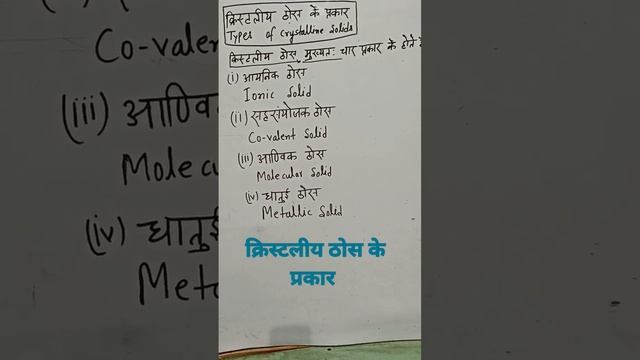 क्रिस्टलीय ठोस के प्रकार
Types of Crystalline Solids
क्रिस्टलीय ठोस मुख्यतः चार प्रकार के होते है
(i) आयनिक ठोस
Ionic Solid
(ii) सहसंयोजक ठोस
Co-valent Solid
(iii) आण्विक ठोस
Molecular Solid
(iv) धातुई ठोस
Metallic Solid
क्रिस्टलीय ठोस के
प्रकार
Co-valent
(iii) आण्विक
Molecu
(iv) धातुई
Meta